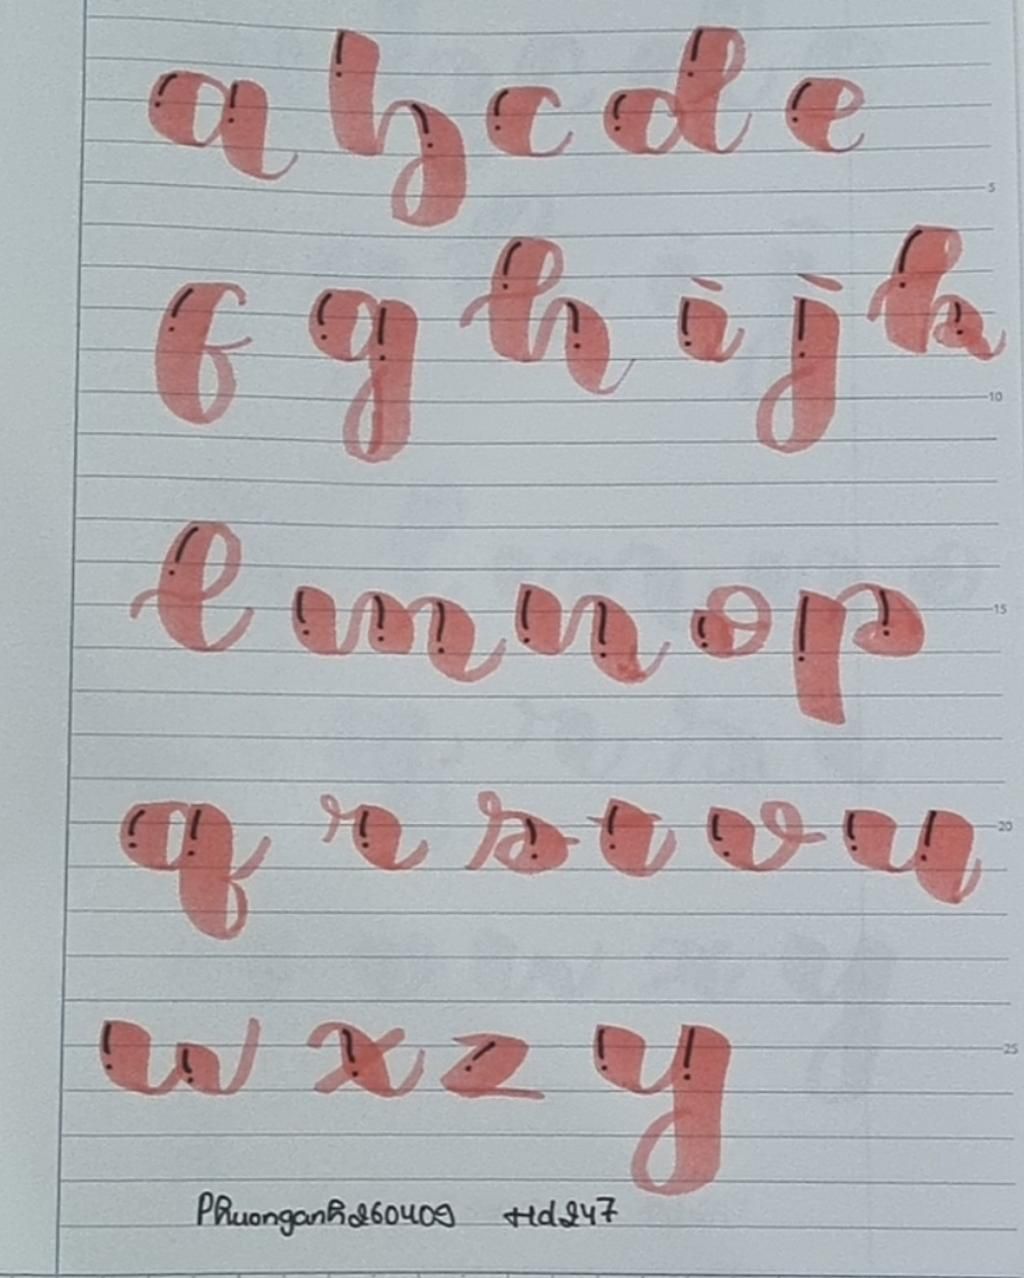 a b c d e
5
f g h i j k
10
l m n o p
15
q r s t v u
20
w x z y
25
Phuonganh260409 Hd247